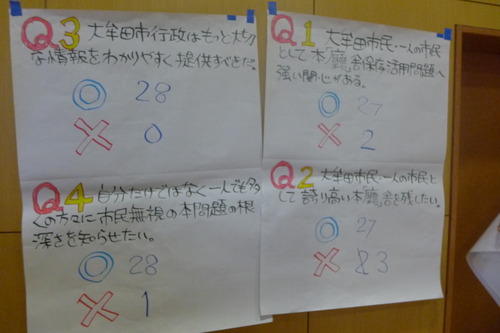 Q3 大牟田市行政はもっと大切
な情報をわかりやすく提供すべきだ。
◎ 28
× 0
Q4 自分だけではなく一人でも多
くの方々に市民無視の本問題の根
深さを知らせたい。
◎ 28
× 1
Q1 大牟田市民・一人の市民
として本廳舎保存活用問題へ
強い関心がある。
◎ 27
× 2
Q2 大牟田市民・一人の市民として
誇り高い本廳舎を残したい。
◎ 27
× 3